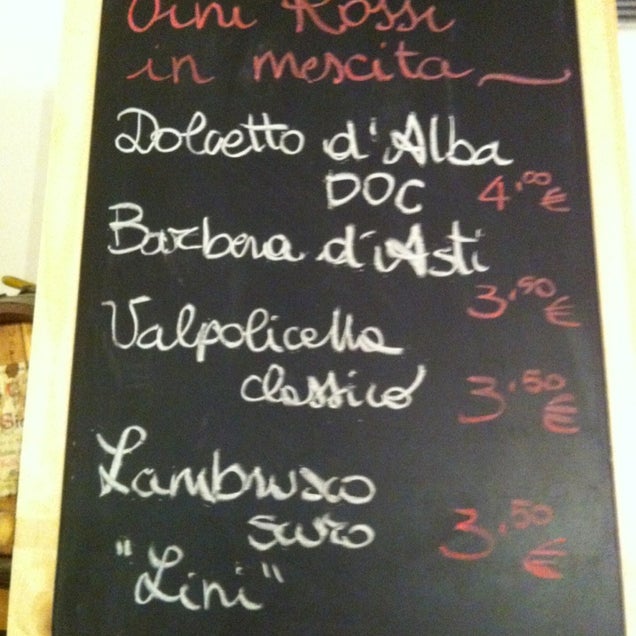 Vini Rossi
in mescita
Dolcetto d'Alba
DOC 4,00 €
Barbera d'Asti
3,50 €
Valpolicella
classico 3,50 €
Lambrusco
scuro 3,50 €
"Lini"